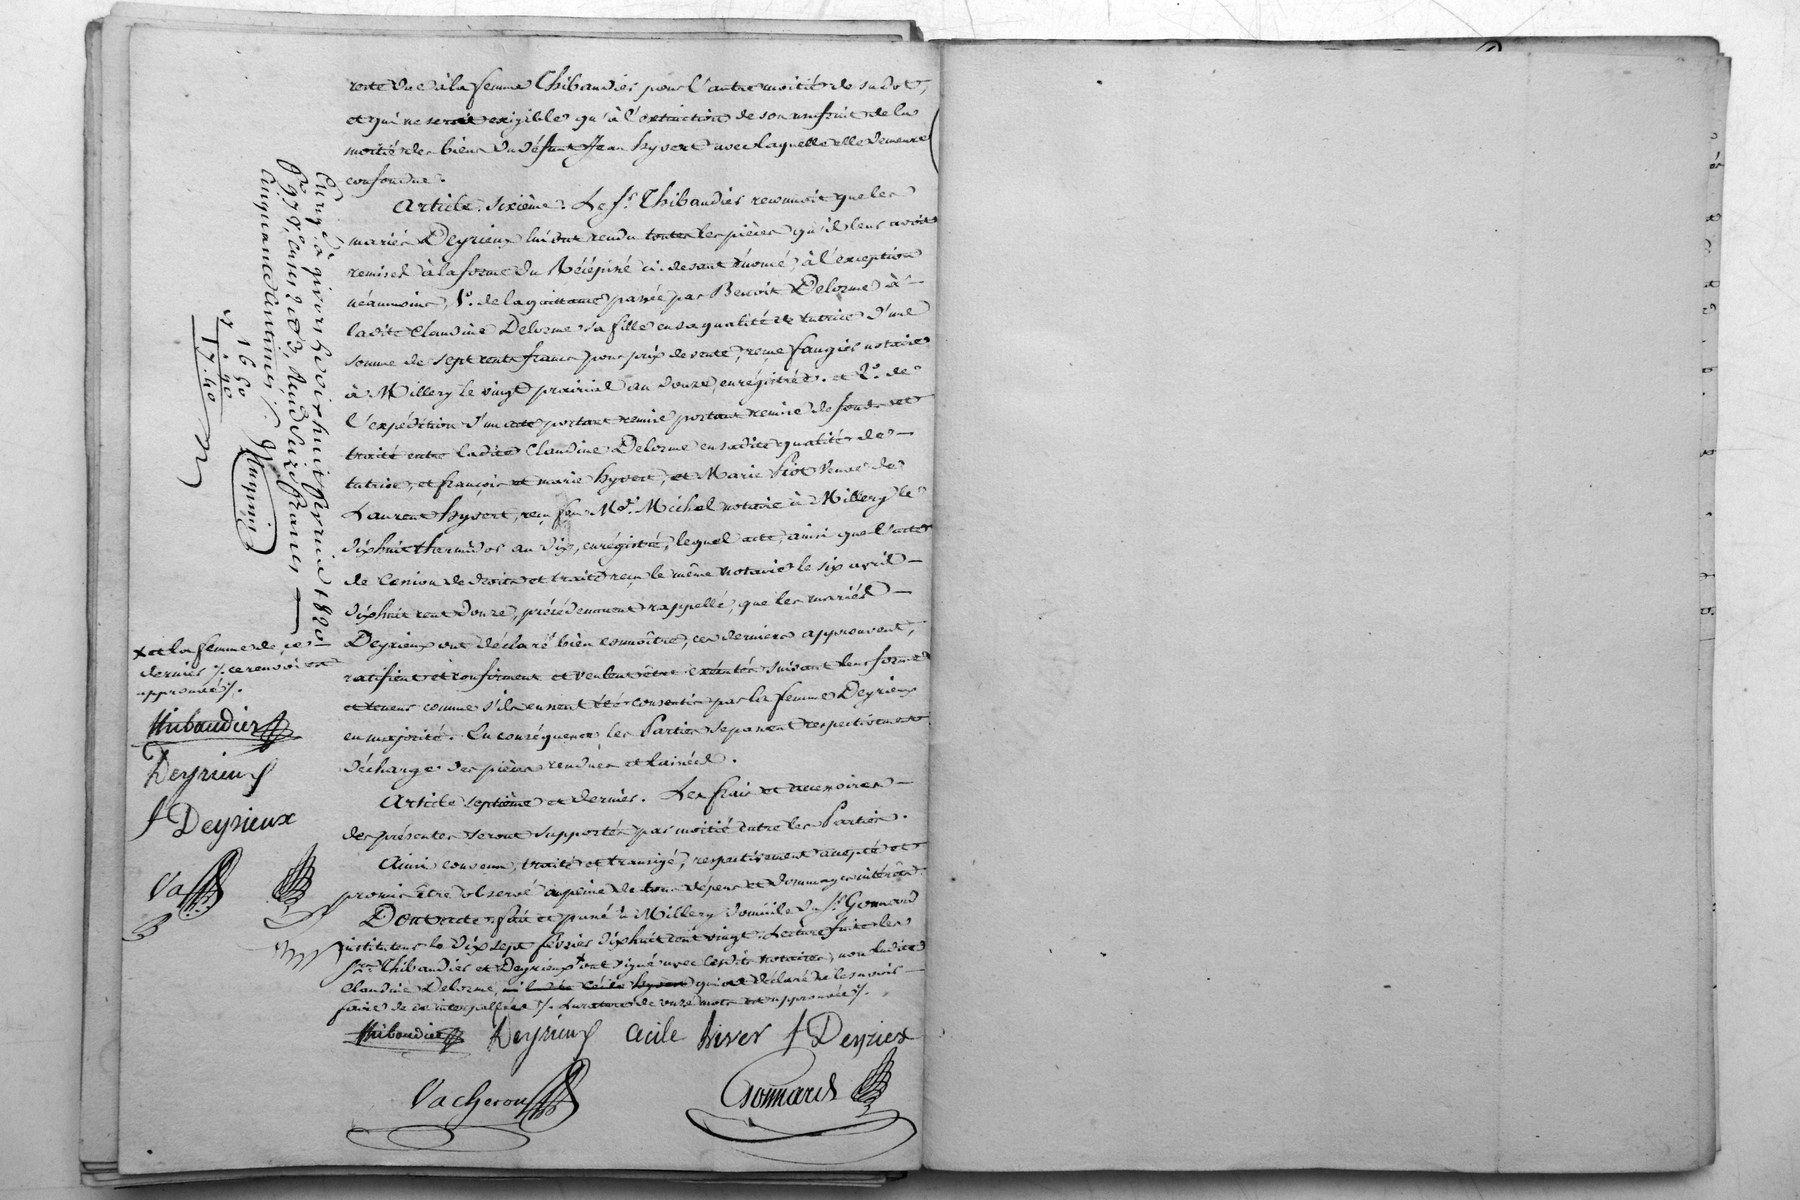 reste due à la femme Thibaudier pour l'autre moitié de sa dot,
et qui ne seroit exigible qu'à l'extinction de son usufruit de la
moitié des biens du défunt Jean hyvert avec laquelle elle demeure
confondue.
Article sixième. Le Sr. Thibaudier reconnoit que les
mariés Deyrieux lui ont rendu toutes les pièces qu'il leur avoit
remises à la forme du Récépissé ci-devant énoncé, à l'exception
néaumoins, 1o. de la quittance passée par Benoit Delorme à
ladite Claudine Delorme sa fille en sa qualité de tutrice d'une
somme de sept cents francs pour prix de vente, reçue faugier notaire
à Millery le vingt prairial an douze, enregistrée. et 2o. de
l'expédition d'un acte portant remise portant remise de fonds et
traité entre ladite Claudine Delorme en sadite qualité de
tutrice, et françois et marie hyvert, et Marie Piot veuve de
Laurent hyvert, reçu feu Me. Michel notaire à Millery le
dixhuit thermidor an dix, enregistré, lequel acte, ainsi que l'acte
de Cession de droits et traité reçu le même notaire le six avril
dixhuit cent douze, précédemment rappellé, que les mariés
Deyrieux ont déclaré bien connoître, ces derniers approuvent,
ratifient et confirment et veulent être exécutés suivant leur forme
et teneur comme s'ils eussent été consentis par la femme Deyrieux
en majorité. En conséquence les Parties se passent respectivement
décharge des pièces rendues et lainées.
Article septième et dernier. Les frais et accessoires
des présentes seront supportés par moitié entre les Parties.
Ainsi convenu, traité et transigé, respectivement accepté et
promis être observé aupeine de tous dépens et dommages intérêts
Dont acte, fait et passé à Millery domicile du Sr. Gonnard
instituteur le dix sept février dixhuit cent vingt. Lecture faite les
Srs. Thibaudier et Deyrieux x ont signé avec lesdits notaires, non ladite
Claudine Delorme, ni ladite Cécile hyvert qui a déclaré ne le savoir
faire de ce interpellées ./. La rature de onze mots est approuvée ./.
Thibaudier Deyrieux Cicile hiver f Deyriex
Vacheron Gonnard
x et la femme de ce
dernier ./. ce renvoi est
approuvé ./.
Thibaudier
Deyrieux
f Deyrieux
Va
Enreg. à givors le dix huit février 1820
fo. 97 Vo. cases 2 et 3, Reçu seize francs
Cinquante Centimes ./.
16 50
1 90
17.40